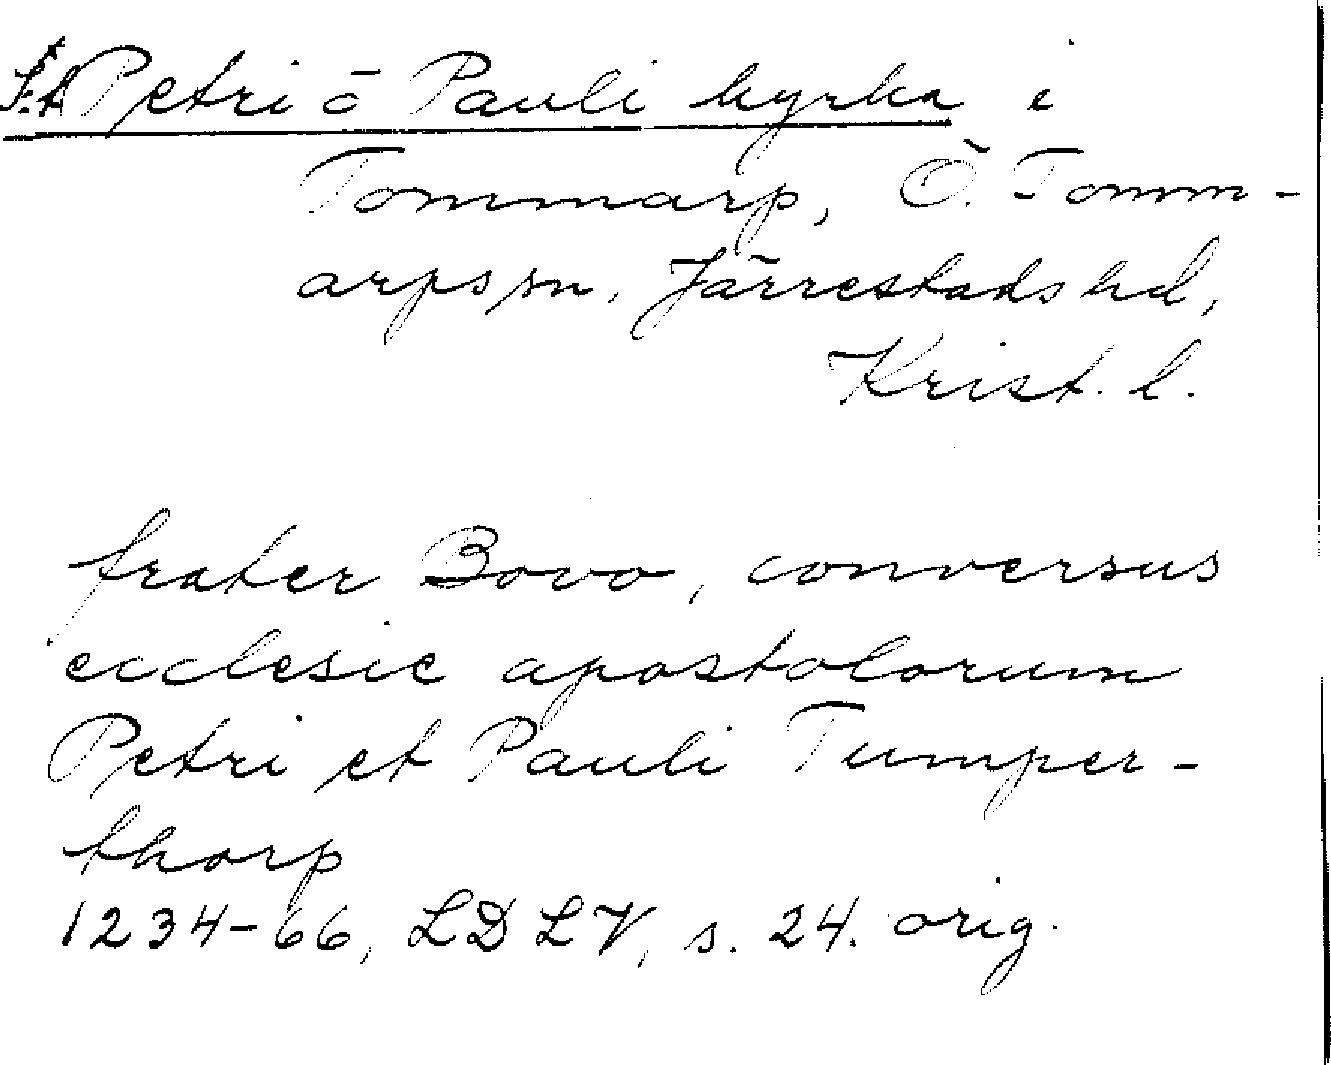 S:t Petri ō Pauli kyrka i
Tommarp, Ö. Tomm-
arps sn, Järrestads hd,
Krist. l.
frater Bovo, conversus
ecclesie apostolorum
Petri et Pauli Tumper-
thorp
1234-66, LD LV, s. 24. orig.